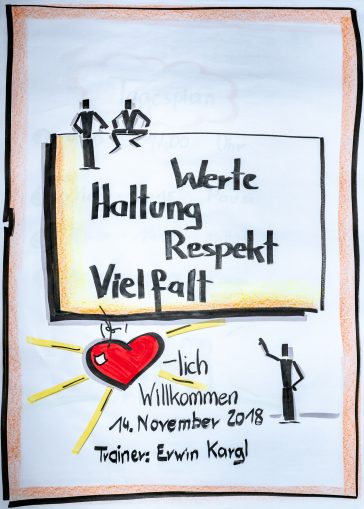 Werte
Haltung
Respekt
Vielfalt
-lich
Willkommen
14. November 2018
Trainer: Erwin Kargl